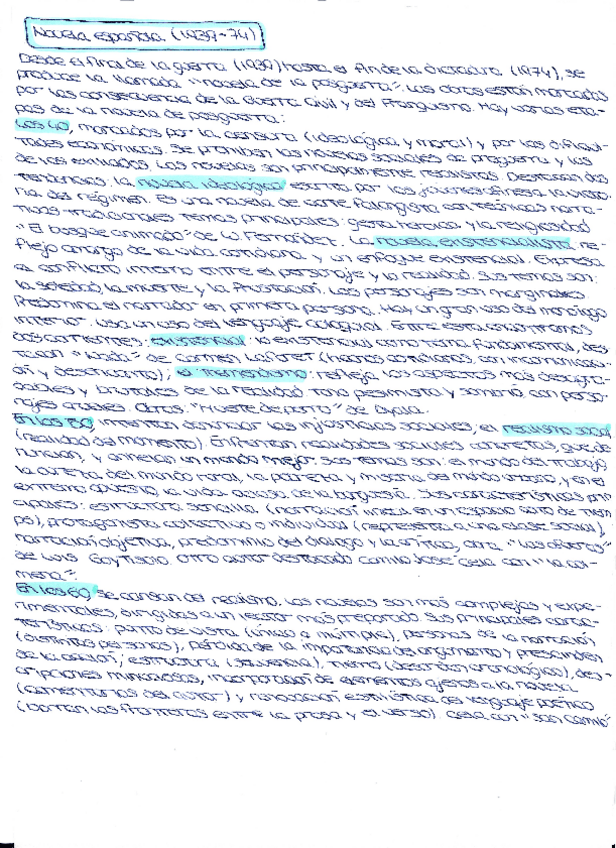 Novela española (1939-74)
Desde el final de la guerra (1939) hasta el fin de la dictadura (1974), se
produce la llamada "novela de la posguerra". Las obras están marcadas
por las consecuencias de la Guerra Civil y del Franquismo. Hay varias eta-
pas de la novela de posguerra:
Los 40, marcados por la censura (ideológica y moral) y por las dificul-
tades económicas. Se prohíben las novelas sociales de preguerra y las
de los exiliados. Las novelas son principalmente realistas. Destacan dos
tendencias: la novela ideológica escrita por los
del régimen. Es una novela de corte falangista con técnicas narra-
tivas tradicionales temas principales: gesta heroica y la religiosidad
"El bosque animado" de W. Fernández. La novela existencialista, re-
flejo amargo de la vida cotidiana y un enfoque existencial. Expresa
el conflicto interno entre el personaje y la realidad. Sus temas son:
la soledad, la muerte y la frustración. Los personajes son marginales
Predomina el narrador en primera persona. Hay un gran uso del monólogo
interior. Usa un uso del lenguaje coloquial. Entre esta encontramos
dos corrientes: existencial: lo existencial como tema fundamental, des-
tacan "Nada" de Carmen Laforet (hechos cotidianos, con incomunicaci-
ón y desencanto); el tremendismo: refleja los aspectos más desagra-
dables y brutales de la realidad tono pesimista y sombrío con perso-
najes crueles. Obras: "Muerte de perro" de Ayala.
En los 50, intentan denunciar las injusticias sociales, el realismo social
(realidad del momento). Enfrentan realidades sociales concretas, que de-
nuncian, y anhelan un mundo mejor. Sus temas son: el mundo del trabajo
la dureza del mundo rural, la pobreza y miseria del mundo urbano, y en el
extremo opuesto la vida ociosa de la burguesía. Sus características prin-
cipales: estructura sencilla (narración lineal en un espacio corto de tiem-
po), protagonista colectivo o individual (representa a una clase social),
narración objetiva, predominio del diálogo y la crítica, obra "Las afueras"
de Luis Goytisolo. Otro autor destacado Camilo José Cela con "La col-
mena".
En los 60, se cansan del realismo. Las novelas son más complejas y expe-
rimentales, dirigidas a un lector más preparado. Sus principales carac-
terísticas: punto de vista (único o múltiple), personas de la narración
(distintas personas), pérdida de la importancia del argumento y prescinden
de la acción, estructura (secuencia), tiempo (desorden cronológico), des-
cripciones minuciosas, incorporación de elementos ajenos a la novela
(comentarios del autor) y renovación estilística del lenguaje poético
(borran las fronteras entre la prosa y el verso). Cela con "San Camilo